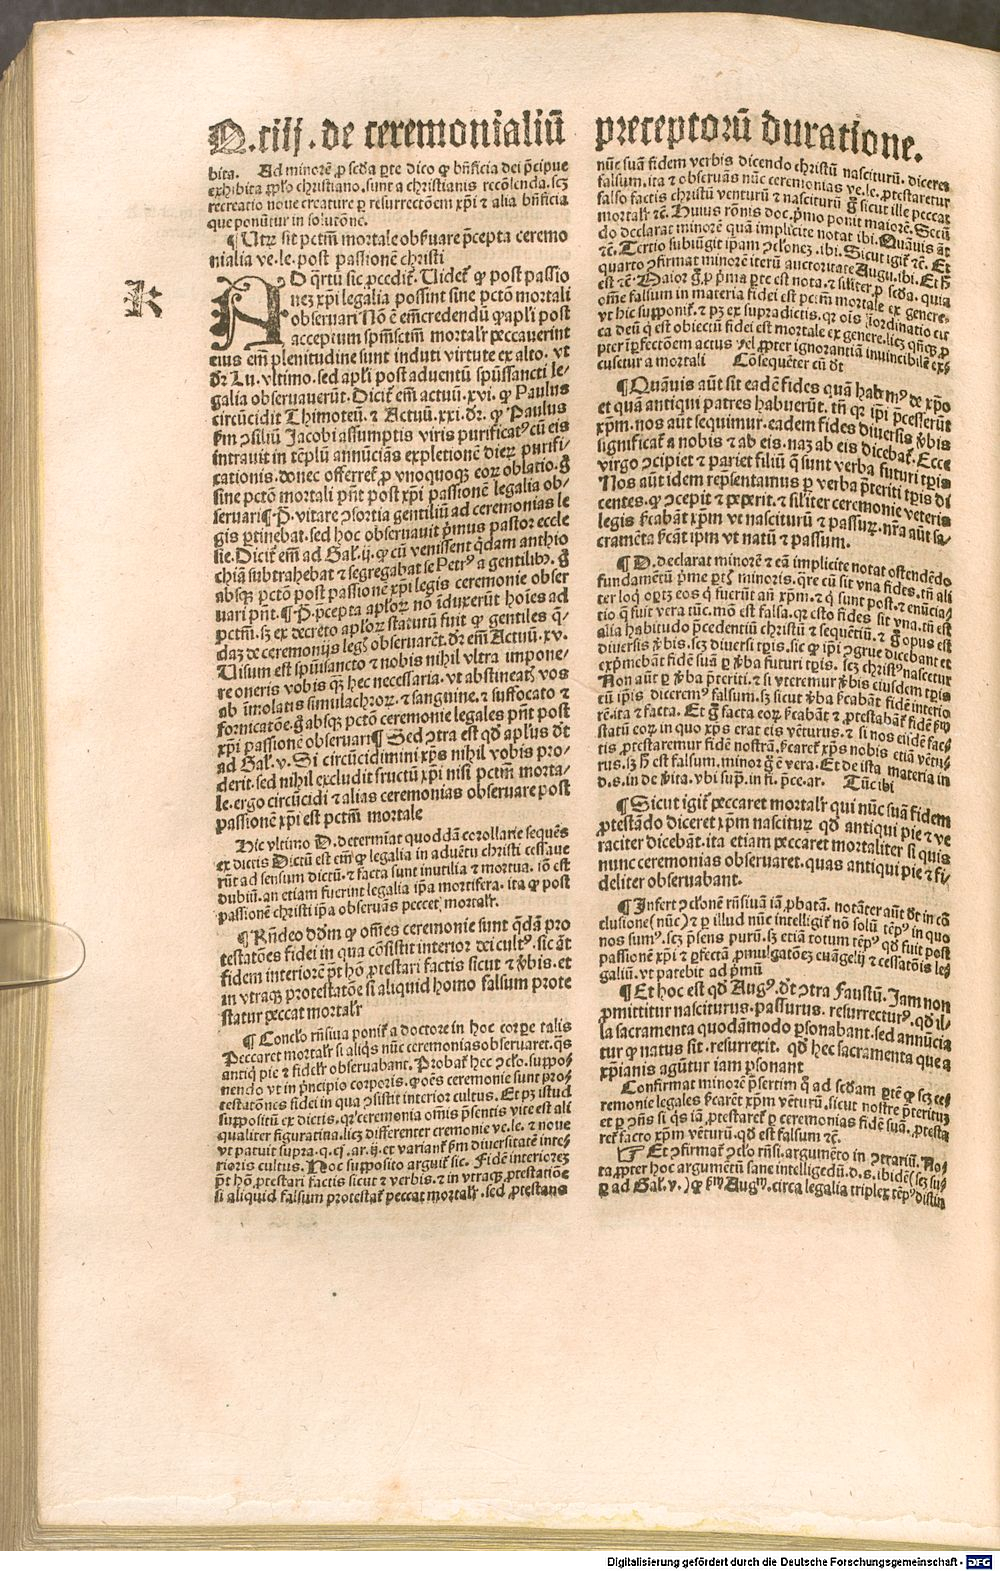 Q.ciij. de ceremonialiū preceptorū duratione.
bita. Ad minorē ꝓ scḋa ꝑte dico ꝙ bn̄ficia dei p̄cipue
exhibita ꝓplo christiano. sunt a christianis recōlenda. scꝫ
recreatio noue creature ꝑ resurrectōem xp̄i ⁊ alia bn̄ficia
que ponūtur in solutōne.
¶ Utrꝝ sit pctm̄ mortale obẜuare p̄cepta ceremo
nialia ve. le. post passionē christi
k
AD q̄rtū sic ꝓcedit̄. Uidet̄ ꝙ post passio
neꝫ xp̄i legalia possint sine pctō mortali
obseruari Nō ē em̄ credendū ꝙ apl̄i post
acceptum spm̄sctm̄ mortalr̄ peccauerint
eius em̄ plenitudine sunt induti virtute ex alto. vt
dr̄ Lu. vltimo. sed apl̄i post aduentū spūssancti le⸗
galia obseruauerūt. Dicit̄ em̄ actuū. xvi. ꝙ Paulus
circūcidit Thimoteū. ⁊ Actuū. xxi. dr̄. ꝙ Paulus
ẜm ꝯsiliū Jacobi assumptis viris purificatꝰ cū eis
intrauit in tēplū annūcians expletionē dierꝝ purifi⸗
cationis. donec offerret̄ ꝓ vnoquoqꝫ eorꝝ oblatio. g̊
sine pctō mortali pn̄t post xp̄i passionē legalia ob⸗
seruari ¶ P̄. vitare ꝯsortia gentiliū ad ceremonias le
gis ꝑtinebat. sed hoc obseruauit p̄mus pastor eccle
sie. Dicit̄ em̄ ad Gal̄. ij. ꝙ cū venissent q̄dam anthio
chiā subtrahebat ⁊ segregabat se Petrꝰ a gentilibꝫ. g̊
absqꝫ pctō post passionē xp̄i legis ceremonie obser
uari pn̄t. ¶ P̄. p̄cepta apl̄oꝝ nō īduxerūt hoīes ad
pctm̄. sꝫ ex decreto apl̄oꝝ statutū fuit ꝙ gentiles q̄⸗
daꝫ de ceremonijs legꝭ obseruarēt. dr̄ em̄ Actuū. xv.
Uisum est spūisancto ⁊ nobis nihil vltra impone⸗
re oneris vobis qꝫ hec necessaria. vt abstineatꝭ vos
ab īmolatis simulachroꝝ. ⁊ sanguine. ⁊ suffocato ⁊
fornicatōe. g̊ absqꝫ pctō ceremonie legales pn̄t post
xp̄i passionē obseruari ¶ Sed ꝯtra est qḋ apl̄us dt̄
ad Gal̄. v. Si circūcidimini xp̄s nihil vobis pro⸗
derit. sed nihil excludit fructū xp̄i nisi pctm̄ morta⸗
le. ergo circūcidi ⁊ alias ceremonias obseruare post
passionē xp̄i est pctm̄ mortale
Hic vltimo D. determīat quoddā corollarie sequēs
ex dictis Dictū est em̄ ꝙ legalia in aduētu christi cessaue
rūt ad sensum dictū. ⁊ facta sunt inutilia ⁊ mortua. iō est
dubiū. an etiam fuerint legalia ip̄a mortifera. ita ꝙ post
passionē christi ip̄a obseruās peccet mortalr̄.
¶ Rn̄deo ḋdm̄ ꝙ om̄es ceremonie sunt q̄dā pro
testatōes fidei in qua cōsistit interior dei cultꝰ. sic āt
fidem interiorē pt̄ hō ꝓtestari factis sicut ⁊ ꝟbis. et
in vtraqꝫ protestatōe si aliquid homo falsum prote
statur peccat mortalr̄
¶ Conclo rn̄siua ponit̄ a doctore in hoc corꝑe talis
Peccaret mortalr̄ si aliqs nūc ceremonias obseruaret. qs
antiq̄ pie ⁊ fidelr̄ obseruabant. Probat̄ hec ꝯclo. suppo⸗
nendo vt in p̄ncipio corporis. ꝙ oēs ceremonie sunt pro⸗
testatōnes fidei in qua ꝯsistit interior cultus. Et pꝫ istud
suppositū ex dictis. qꝛ ceremonia om̄is p̄sentis vite est ali
qualiter figuratiua. licꝫ differenter cremonie ve. le. ⁊ noue
vt patuit supra. q. cj. ar. ij. et variant̄ ẜm diuersitatē inte⸗
rioris cultus. Hoc supposito arguit̄ sic. Fidē interioreꝫ
pt̄ hō ꝓtestari factis sicut ⁊ verbis. ⁊ in vtraqꝫ ꝓtestatiōe
si aliquid falsum protestat̄ peccat mortalr̄. sed ꝓtestans
nūc suā fidem verbis dicendo christū nasciturū. diceret
falsum. ita ⁊ obseruās nūc ceremonias ve. le. ꝓtestaretur
falso factis christū venturū ⁊ nasciturū g̊ sicut ille peccat
mortalr̄ ⁊c̄. Huius rōnis doc. p̄mo ponit maiorē. Secū
do declarat minorē quā implicite notat ibi. Quāuis āt
⁊c̄. Tertio subiūgit ip̄am ꝯclōneꝫ. ibi. Sicut igit̄ ⁊c̄. Et
quarto ꝯfirmat minorē iterū auctoritate Augu. ibi. Et h̄
est ⁊c̄. Maior g̊ ꝓ p̄ma ꝑte est nota. ⁊ siliter ꝓ scḋa. quia
om̄e falsum in materia fidei est pctm̄ mortale ex genere.
vt hic supponit̄. ⁊ pꝫ ex supradictis. qꝛ oīs īordinatio cir
ca deū ꝙ est obiectū fidei est mortale ex genere. licꝫ qn̄qꝫ ꝓ
pter īꝑfectōem actus vel ꝓpter ignorantiā inuincibilē ex⸗
cusetur a mortali Cōsequēter cū dt̄
¶ Quāuis aūt sit eadē fides quā habemꝰ de xp̄o
et quā antiqui patres habuerūt. tn̄ qꝛ ip̄i p̄cesserūt
xp̄m. nos aūt sequimur. eadem fides diuersis ꝟbis
significat̄ a nobis ⁊ ab eis. naꝫ ab eis dicebat̄. Ecce
virgo ꝯcipiet ⁊ pariet filiū q̄ sunt verba futuri tꝑis
Nos aūt idem repn̄tamus ꝑ verba p̄teriti tꝑis di
centes. ꝙ ꝯcepit ⁊ peperit. ⁊ siliter ceremonie veteris
legis ẜcabāt xp̄m vt nasciturū ⁊ passurꝝ. nr̄a aūt sa⸗
cramēta ẜcāt ip̄m vt natū ⁊ passum.
¶ D. declarat minorē ⁊ eā implicite notat ostendēdo
fundamētū p̄me ꝑtꝭ minoris. qre cū sit vna fides. tn̄ ali
ter loq̄ oꝑtꝫ eos q̄ fuerūt añ xp̄m. ⁊ q̄ sunt post. ⁊ enūcia⸗
tio q̄ fuit vera tūc. mō est falsa. qꝛ cū fides sit vna. tn̄ est
alia habitudo p̄cedentiū christū ⁊ sequētiū. ⁊ g̊ opus est
diuersis ꝟbis. scꝫ diuersi tꝑis. sic ꝙ ip̄i ꝯgrue dicebant et
exp̄mebāt fidē suā ꝑ ꝟba futuri tꝑis. scꝫ christꝰ nascetur
Non aūt ꝑ ꝟba p̄teriti. ⁊ si vteremur ꝟbis eiusdem tꝑis
cū ip̄is diceremꝰ falsum. sꝫ sicut ꝟba ẜcabāt fidē interio
rē. ita ⁊ facta. Et g̊ facta eoꝝ ẜcabāt ⁊ ꝓtestabāt̄ fidē ẜm
statū eoꝝ in quo xp̄s erat eis vēturus. ⁊ si nos eiidē fac⸗
tis ꝓtestaremur fidē nostrā. ẜcaret̄ xp̄s nobis etiā vētu⸗
rus. sꝫ h̄ est falsum. minor g̊ ē vera. Et de ista materia in
d. s. in de ꝟita. vbi supra. in fi. p̄ce. ar. Tūc ibi
¶ Sicut igit̄ peccaret mortalr̄ qui nūc suā fidem
ꝓtestādo diceret xp̄m nasciturꝝ qḋ antiqui pie ⁊ ve
raciter dicebāt. ita etiam peccaret mortaliter si quis
nunc ceremonias obseruaret. quas antiqui pie ⁊ fi⸗
deliter obseruabant.
¶ Infert ꝯclōnē rn̄siuā iā ꝓbatā. notāter aūt dt̄ in cō
clusione (nūc) ⁊ ꝑ illud nūc intelligit̄ nō solū tēpꝰ in quo
nos sumꝰ. scꝫ p̄sens purū. sꝫ etiā totum tēpꝰ qḋ fuit post
passionē xp̄i ⁊ ꝑfectā ꝓmulgatōeꝫ euāgelij ⁊ cessatōis le⸗
galiū. vt patebit ad p̄mū
¶ Et hoc est qḋ Augꝰ. dt̄ ꝯtra Faustū. Jam non
ꝓmittitur nasciturus. passurus. resurrecturꝰ. qḋ il⸗
la sacramenta quodāmodo ꝑsonabant. sed annūcia
tur ꝙ natus sit. resurrexit. qḋ hec sacramenta que a
xp̄ianis agūtur iam ꝑsonant
Confirmat minorē p̄sertim q̄ ad scḋam ꝑtē ꝙ scꝫ ce⸗
remonie legales ẜcarēt xp̄m vēturū. sicut nostre p̄teritus
et ꝑ ꝯñs si qs iā ꝓtestaret̄ ꝑ ceremonias fidē suā. ꝓtesta
ret̄ facto xp̄m vēturū. qḋ est falsum ⁊c̄.
☞ Et ꝯfirmat̄ ꝯclo rn̄si. argumēto in ꝯtrariū. No⸗
ta. ꝓpter hoc argumētū sane intelligēdū. d. s. ibidē (scꝫ su⸗
ꝑ ad Gal̄. v.) ꝙ ẜm Augꝰ. circa legalia triplex tēpꝰ distin